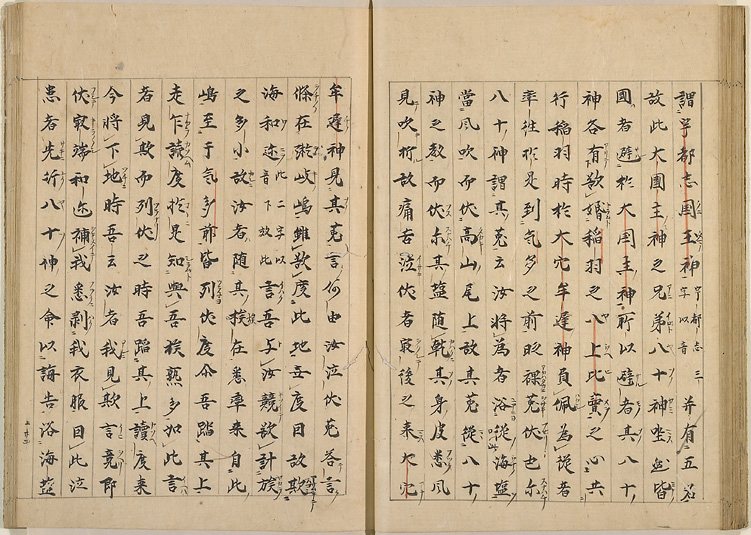 謂宇都志国玉神宇都志三字以音并有五名
故此大國主神之兄弟八十神坐然皆
國者避於大国主神所以避者其八十
神各有欲婚稲羽之八上比賣之心共
行稲羽時於大穴牟遅神負佩為従者
率往於是到気多之前時裸菟伏也尓
八十神謂其菟云汝将為者浴従海塩
當風吹而伏高山尾上故其菟従八十
神之教而伏尓其塩随乾其身皮悉風
見吹折故痛苦泣伏者最後之来大穴
牟遅神見其菟言何由汝泣伏菟荅言
僚在淤岐嶋雖欲度此地無度因故欺
海和迩此二字以音下效此言吾与汝競欲計族
之多小故汝者随其族在悉率来自此
嶋至于気多前皆列伏度尓吾蹈其上
走乍讀度於是知與吾族孰多如此言
者見欺而列伏之時吾蹈其上讀度来
今将下地時吾云汝者我見欺言竟即
伏最端和迩捕我悉剥我衣服因此泣
患者先行八十神之命以誨告浴海塩